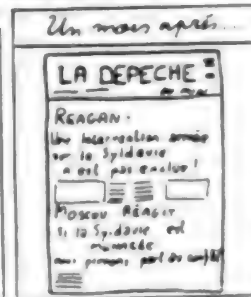 Un mois après...
LA DEPECHE
REAGAN.
Une intervention armée
sur la Syldavie
n'est pas exclue !
MOSCOU RÉAGIT
Si la Syldavie est
menacée
nous prenons part au conflit